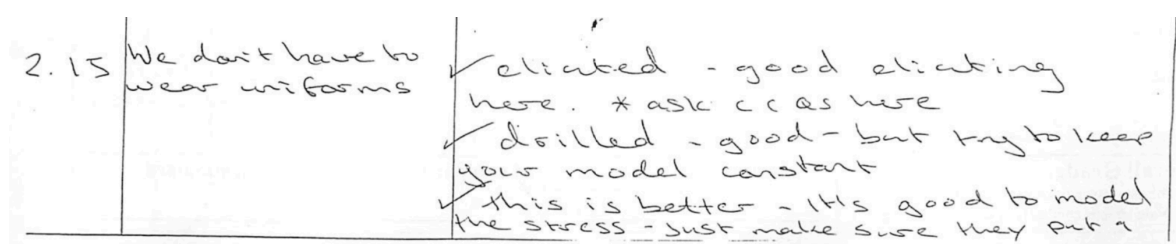 2.15 We don't have to
wear uniforms
✓ elicited - good eliciting
here. * ask ccqs here
✓ drilled - good - but try to keep
your model constant
✓ this is better - It's good to model
the stress - just make sure they put